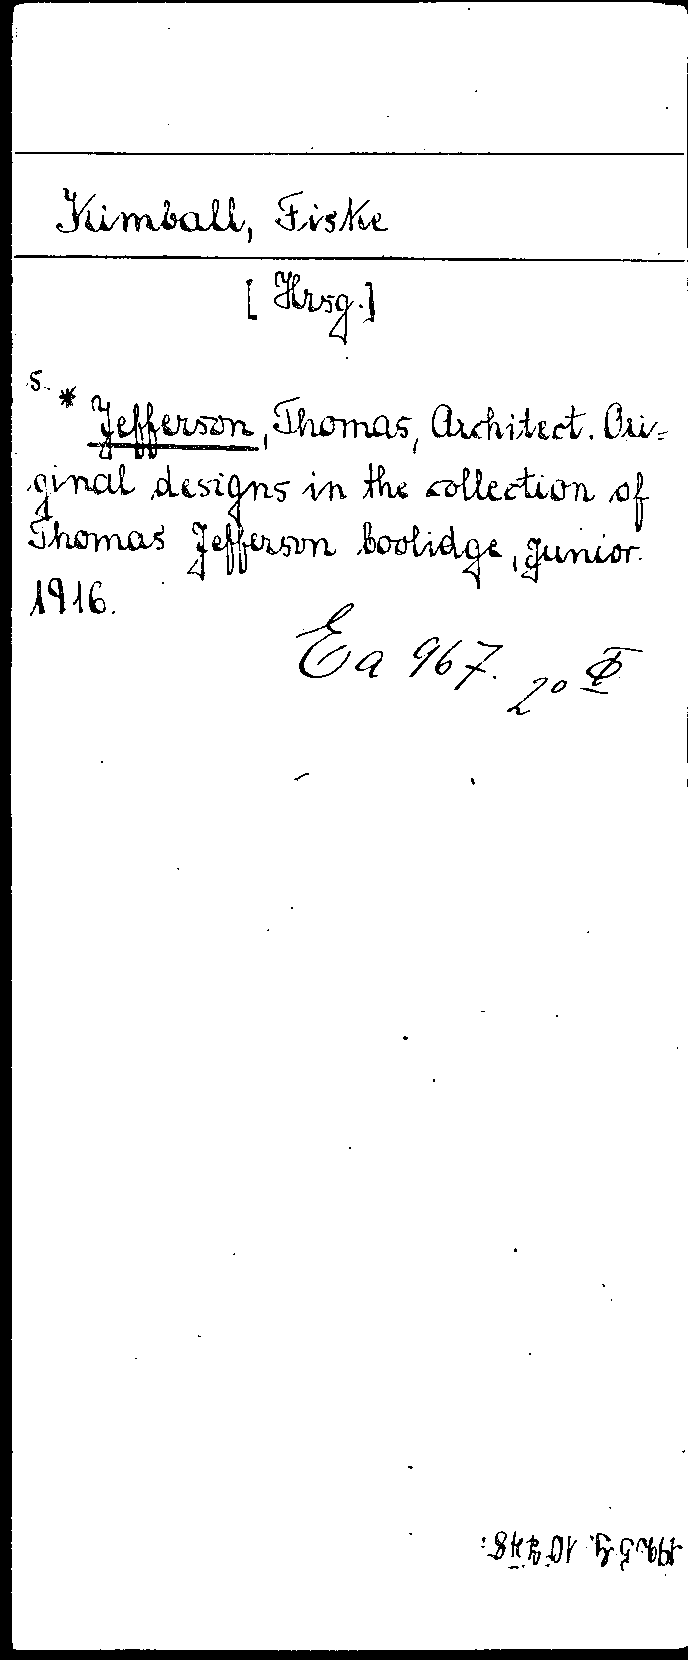 Kimball, Fiske
[Hrsg.]
s. * Jefferson, Thomas, Architect. Ori-
ginal designs in the collection of
Thomas Jefferson Coolidge, junior.
1916.
Ea 967. 2º